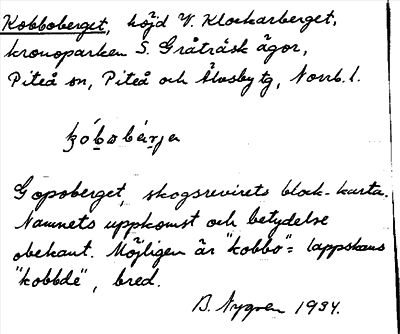 Kobboberget, höjd V. Klockarberget,
kronoparken S. Gråträsk ägor,
Piteå sn, Piteå och Älvsby tg, Norrb. l.
kóbobärjen
Goposberget, skogsrevirets block-karta.
Namnets uppkomst och betydelse
obekant. Möjligen är "kobbo" = lappskans
"kobbdé", bred.
B. Nygren 1934.